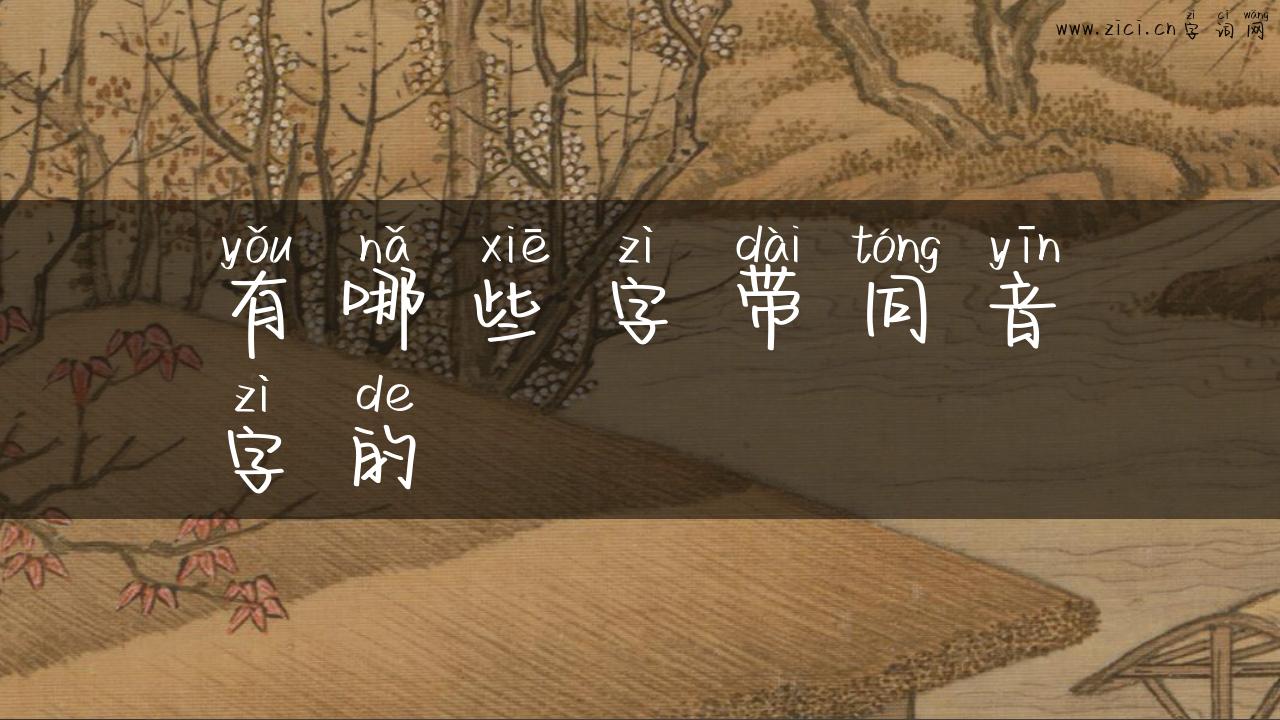 zì cí wǎng
www.zici.cn字词网
yǒu nǎ xiē zì dài tóng yīn
有哪些字带同音
zì de
字的